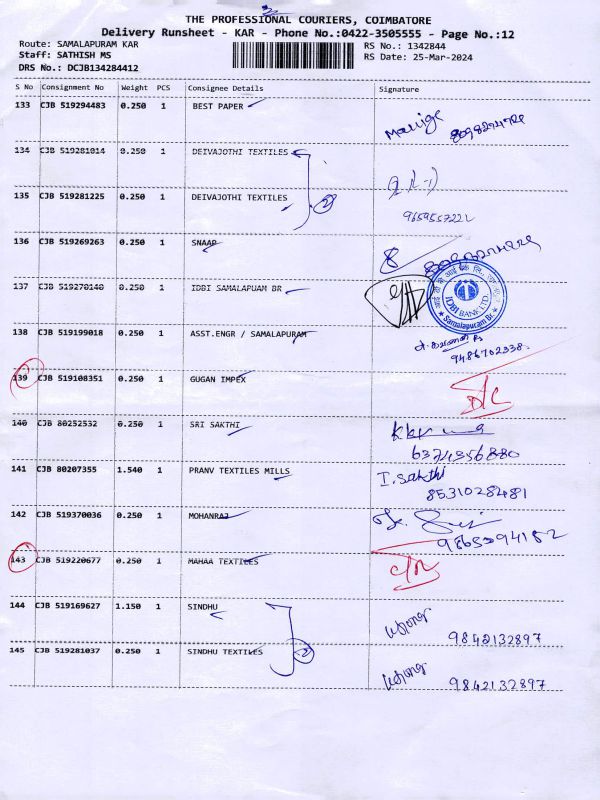 THE PROFESSIONAL COURIERS, COIMBATORE
Delivery Runsheet - KAR - Phone No.:0422-3505555 - Page No.:12
Route: SAMALAPURAM KAR
RS No.: 1342844
Staff: SATHISH MS
RS Date: 25-Mar-2024
DRS No.: DCJB134284412
S No Consignment No Weight PCS Consignee Details Signature
133 CJB 519294483 0.250 1 BEST PAPER
134 CJB 519281014 0.250 1 DEIVAJOTHI TEXTILES
135 CJB 519281225 0.250 1 DEIVAJOTHI TEXTILES
2
136 CJB 519269263 0.250 1 SNAAP
137 CJB 519270140 0.250 1 IDBI SAMALAPUAM BR
IDBI BANK LTD.
Samalapuram Br.
138 CJB 519199018 0.250 1 ASST.ENGR / SAMALAPURAM
9486702338
139 CJB 519108351 0.250 1 GUGAN IMPEX
D/C
140 CJB 80252532 0.250 1 SRI SAKTHI
6374356880
141 CJB 80207355 1.540 1 PRANV TEXTILES MILLS I. Sakthi
8531028481
142 CJB 519370036 0.250 1 MOHANRAJ
143 CJB 519220677 0.250 1 MAHAA TEXTILES
144 CJB 519169627 1.150 1 SINDHU
9842132897
145 CJB 519281037 0.250 1 SINDHU TEXTILES
2
9842132897